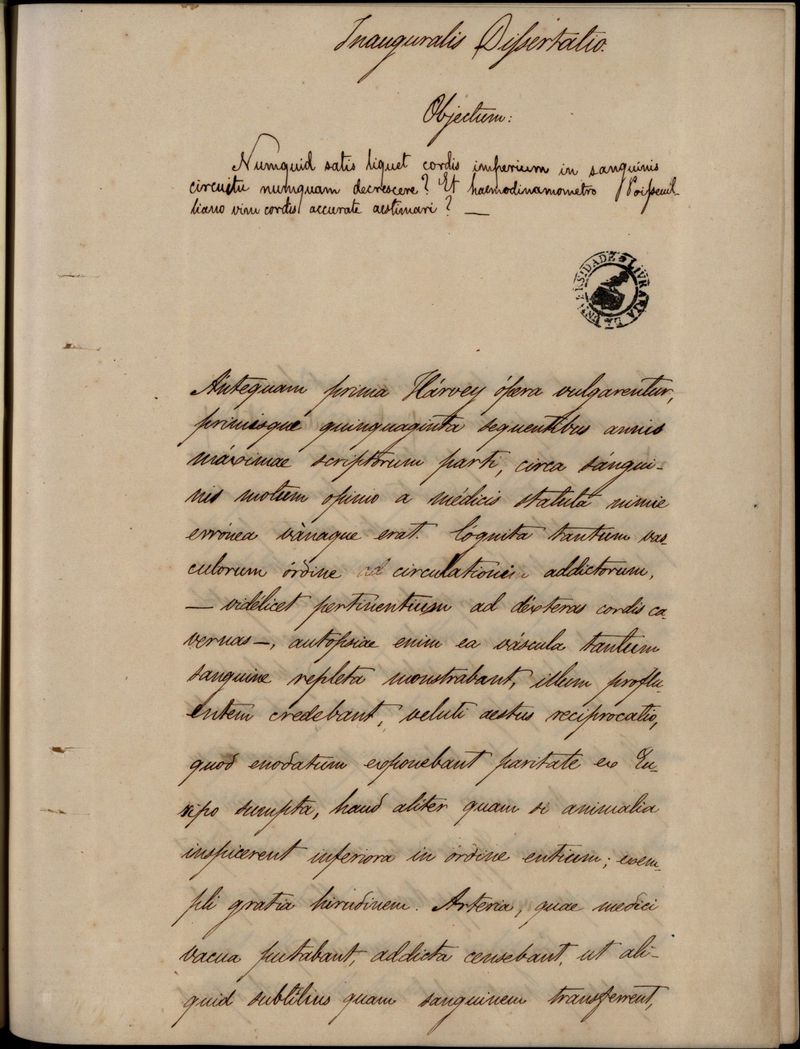 Inauguralis Dissertatio.
Objectum:
Numquid satis liquet cordis imperium in sanguinis
circuitu numquam decrescere? Et haemodinamometro Poisseuil-
liano vim cordis accurate aestimari? —
LIVRARIA DA UNIVERSIDADE
Antequam prima Hárvey ópera vulgarentur,
primisque quinquaginta sequentibus annis
máximae scriptorum parti, circa sángui-
nis motum opinio a médicis statuta nimie
errónea vànaque erat. Cógnita tantum vas-
culorum órdine ad circulationem addictorum,
— vidélicet pertinentium ad déxteras cordis ca-
vernas —, autopsiae enim ea váscula tantum
sanguine repleta monstrabant, illum proflu-
entem credebant, veluti aestus reciprocatio,
quod enodatum exponebant paritate ex Eu-
ripo sumpta, haud aliter quam si animalia
inspicerent inferiora in órdine entium; exem-
pli gratia hirudinem. Arteria, quae medici
vacua putabant, addicta censebant, ut ali-
quid subtilius quam sanguinem transferrent,